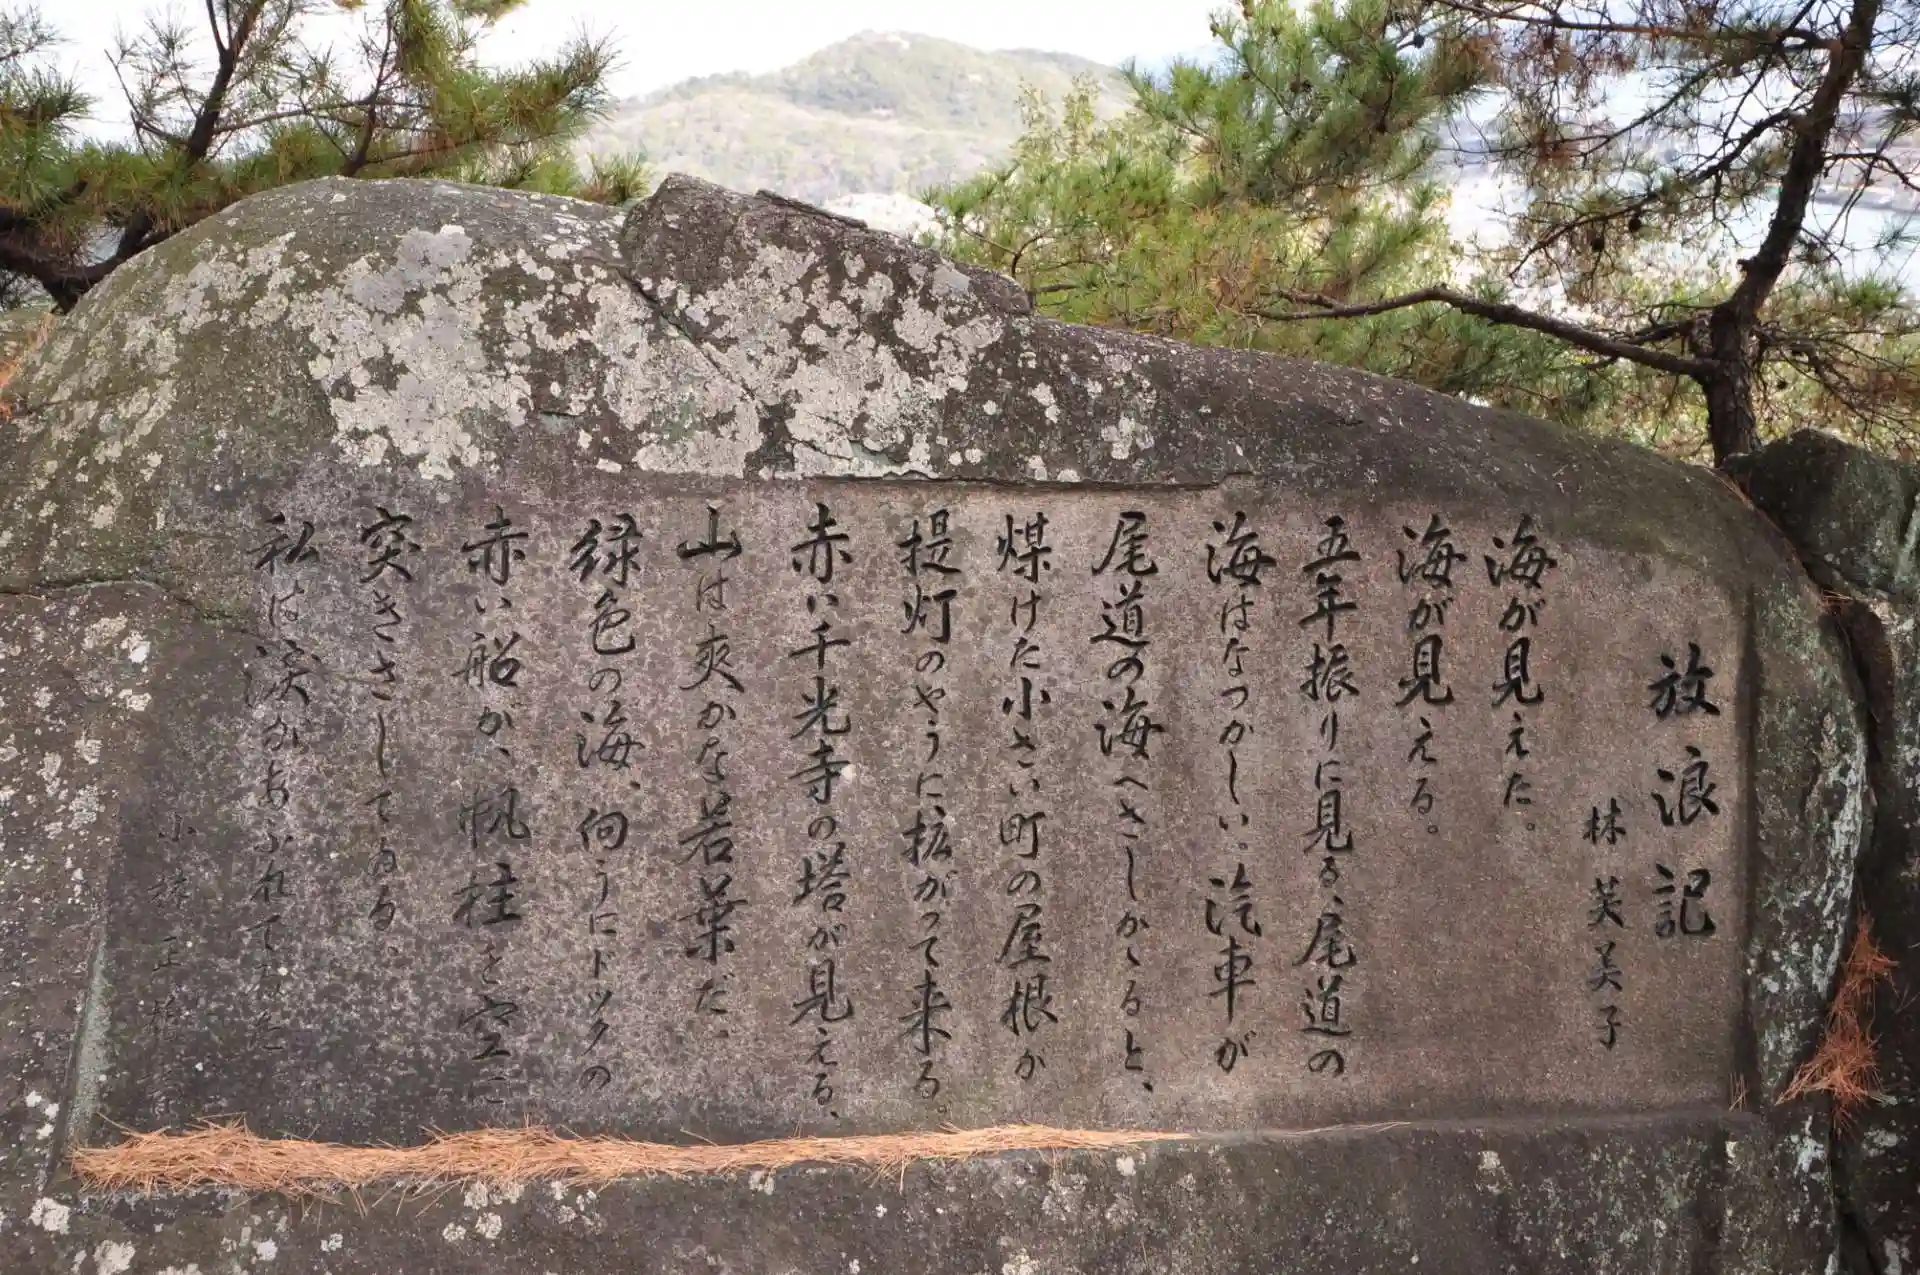 放浪記
林芙美子
海が見えた。
海が見える。
五年振りに見る、尾道の
海はなつかしい。汽車が
尾道の海へさしかゝると、
煤けた小さい町の屋根が
提灯のやうに、拡がって来る。
赤い千光寺の塔が見える、
山は爽かな若葉だ。
緑色の海、向うにドックの
赤い船が、帆柱を空に
突きさしてゐる。
私は涙があふれてゐた
小林正雄書